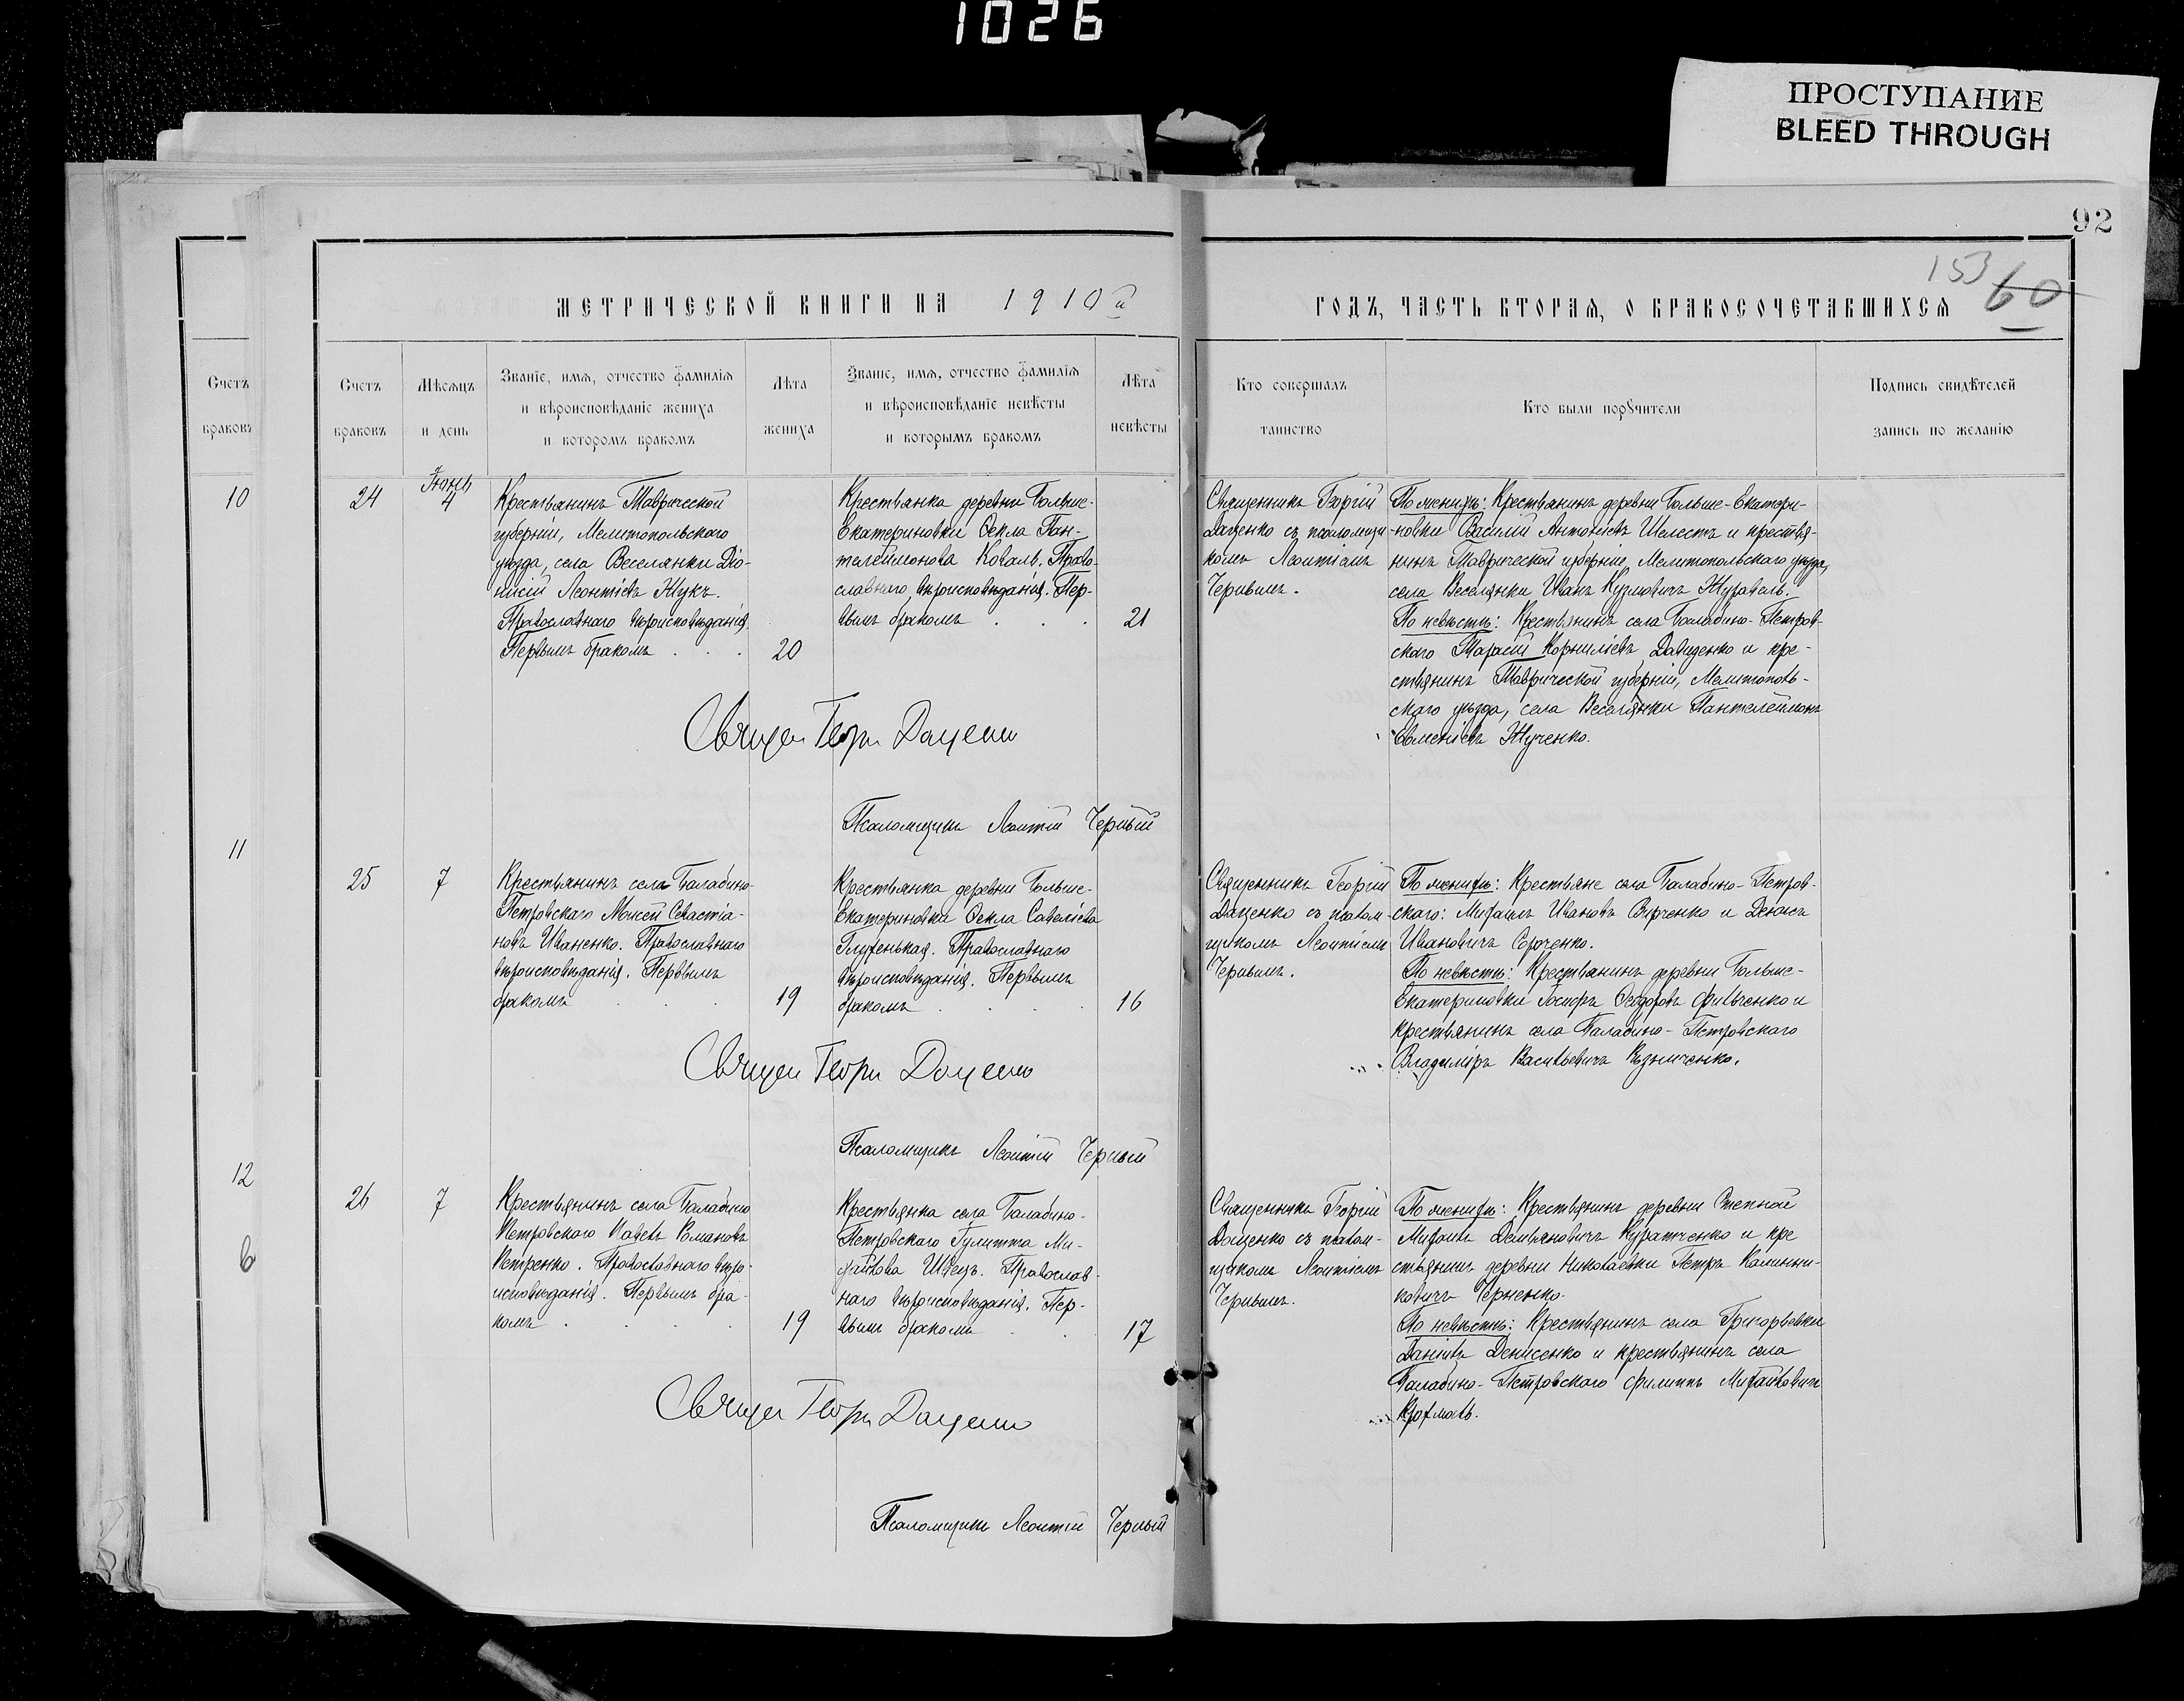 1026
ПРОСТУПАНИЕ
BLEED THROUGH
92
153
60
МЕТРИЧЕСКОЙ КНИГИ НА 1910й
ГОДЪ, ЧАСТЬ ВТОРАЯ, О БРАКОСОЧЕТАВШИХСЯ
Счетъ
браковъ
Счетъ
браковъ
Мѣсяцъ
и день
Званіе, имя, отчество фамилія
и вѣроисповѣданіе жениха
и которомъ бракомъ
Лѣта
жениха
Званіе, имя, отчество фамилія
и вѣроисповѣданіе невѣсты
и которымъ бракомъ
Лѣта
невѣсты
Кто совершалъ
таинство
Кто были поручители
Подпись свидѣтелей
запись по желанію
10
24
Іюнь
4
Крестьянинъ Таврической
губерніи, Мелитопольскаго
уѣзда, села Веселянки Діо-
нисій Леонтіевъ Жукъ.
Православнаго вѣроисповѣданія.
Первымъ бракомъ . . .
20
Крестьянка деревни Больше-
Екатериновки Ѳекла Пан-
телеймонова Коваль. Право-
славнаго вѣроисповѣданія. Пер-
вымъ бракомъ . . .
21
Священникъ Георгій
Даценко съ псаломщи-
комъ Леонтіемъ
Чернымъ.
По женихѣ: Крестьянинъ деревни Больше-Екатери-
новки Василій Антоніевъ Шелестъ и крестья-
нинъ Таврической губерніи, Мелитопольскаго уѣзда,
села Веселянки Иванъ Кузмовичъ Журавель.
По невѣстѣ: Крестьянинъ села Балабино-Петров-
скаго Тарасій Корниліевъ Давиденко и кре-
стьянинъ Таврической губерніи, Мелитополь-
скаго уѣзда, села Веселянки Пантелеймонъ
Жученко.
Священ Георг Даценко
Псаломщикъ Леонтій Черный
11
25
7
Крестьянинъ села Балабино-
Петровскаго Моисей Севастіа-
новъ Иваненко. Православнаго
вѣроисповѣданія. Первымъ
бракомъ . . .
19
Крестьянка деревни Больше-
Екатериновки Ѳекла Савеліева
Глухенькая. Православнаго
вѣроисповѣданія. Первымъ
бракомъ . . . .
16
Священникъ Георгій
Даценко съ псалом-
щикомъ Леонтіемъ
Чернымъ.
По женихѣ: Крестьяне села Балабино-Петров-
скаго: Михаилъ Ивановъ и
Ивановичъ Сороченко.
По невѣстѣ: Крестьянинъ деревни Больше-
Екатериновки Іосифъ Ѳеодоровъ Фильченко и
крестьянинъ села Балабино-Петровскаго
Владиміръ Васильевичъ Кузьмченко.
Священ Георг Даценко
Псаломщикъ Леонтій Черный
12
26
7
Крестьянинъ села Балабино
Петровскаго Павелъ Романовъ
Петренко. Православнаго вѣро-
исповѣданія. Первымъ бра-
комъ . . . .
19
Крестьянка села Балабино-
Петровскаго Гулитта Ми-
хайлова Швецъ. Православ-
наго вѣроисповѣданія. Пер-
вымъ бракомъ . .
17
Священникъ Георгій
Даценко съ псалом-
щикомъ Леонтіемъ
Чернымъ.
По женихѣ: Крестьянинъ деревни Степной
Михаилъ Демьяновичъ и кре
стьянинъ деревни Николаевки Петръ Калинни-
ковичъ Черненко.
По невѣстѣ: Крестьянинъ села Григорьевки
Даніилъ Денисенко и крестьянинъ села
Балабино-Петровскаго Филиппъ Михайловичъ
Крохмаль.
Священ Георг Даценко
Псаломщикъ Леонтій Черный